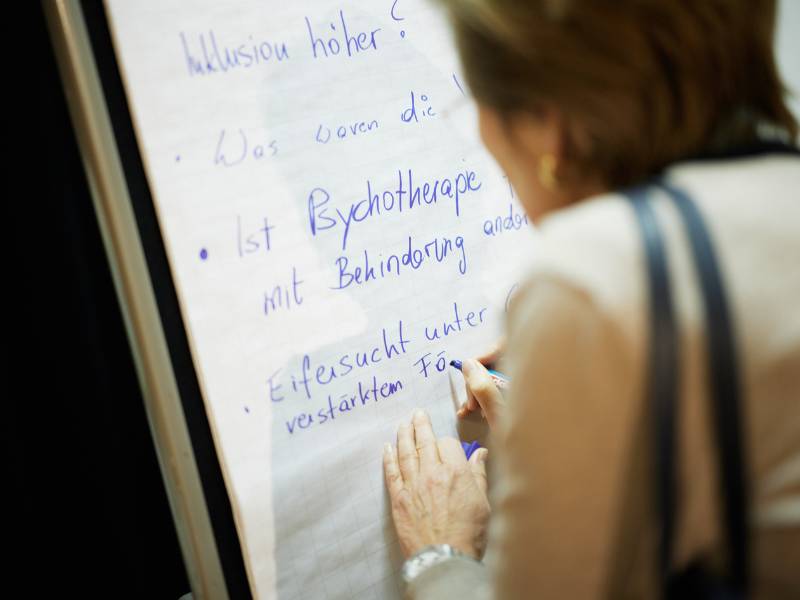 Inklusion höher?
• Was waren die
• Ist Psychotherapie
mit Behinderung ander
• Eifersucht unter
verstärktem Fö